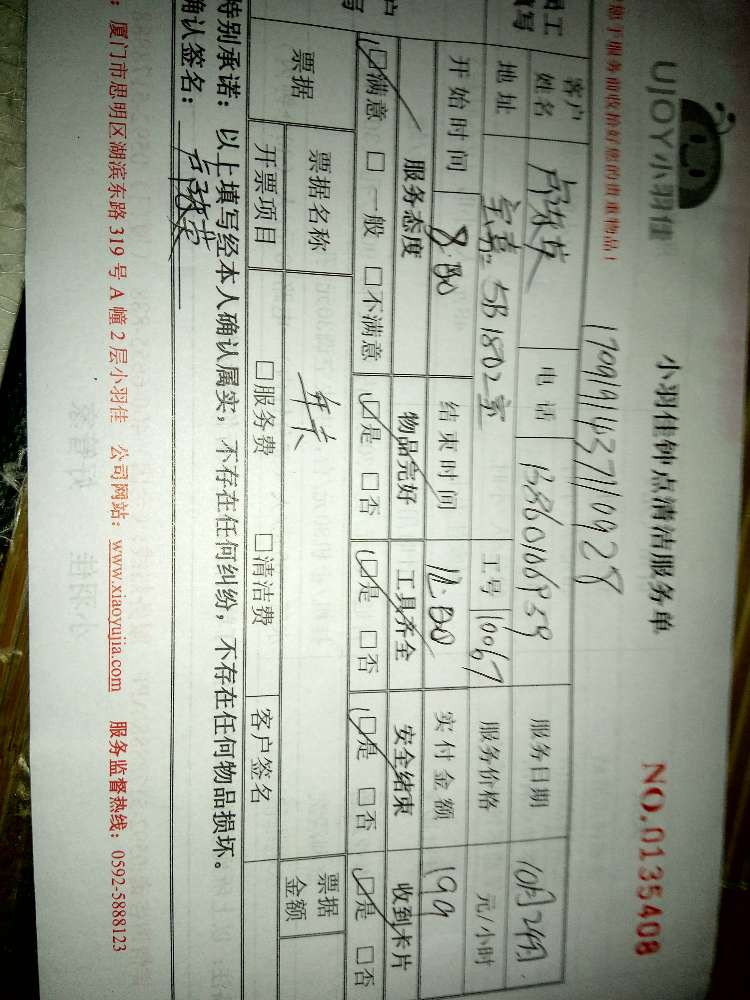 UJOY小羽佳
小羽佳钟点清洁服务单
NO.0135408
您于服务前收拾好您的贵重物品！
170919163710928
客户姓名 卢淑英 电话 服务日期 10月24日
地址 宝嘉 5B1802室 工号 10067 服务价格 元/小时
开始时间 8:00 结束时间 12:00 实付金额 199
服务态度 物品完好 工具齐全 安全结束 收到卡片
☑满意 □一般 □不满意 ☑是 □否 ☑是 □否 ☑是 □否 ☑是 □否
票据 票据名称 年卡 票据金额
开票项目 □服务费 □清洁费 客户签名
特别承诺：以上填写经本人确认属实，不存在任何纠纷，不存在任何物品损坏。
确认签名：卢淑英
：厦门市思明区湖滨东路 319 号 A 幢 2 层小羽佳 公司网站：www.xiaoyujia.com 服务监督热线：0592-5888123